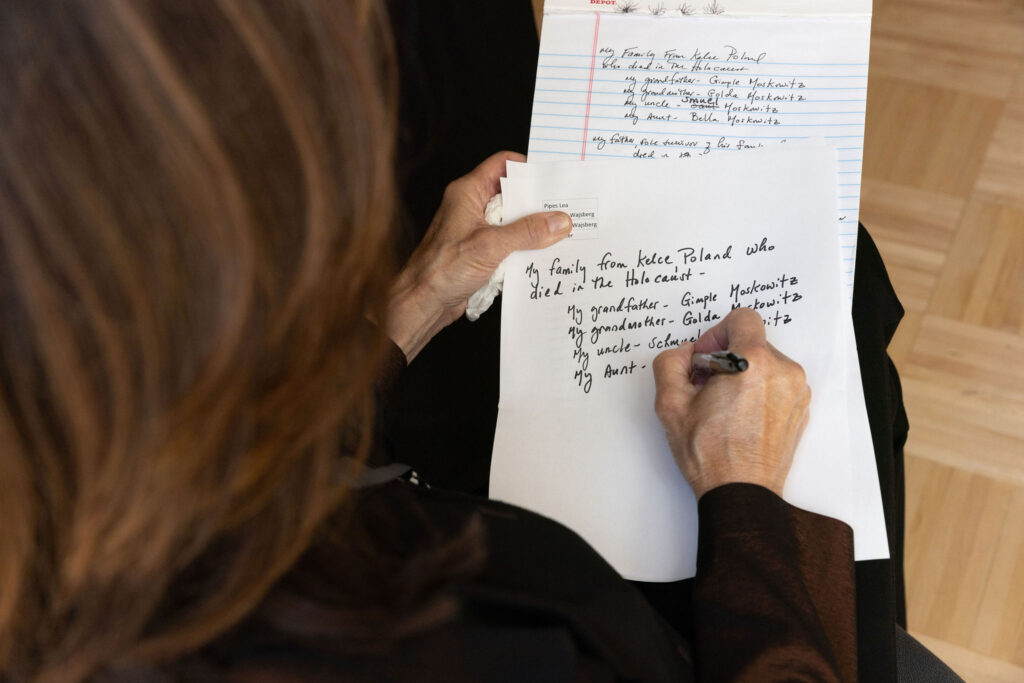 DEPOT
My Family From Kelce Poland
who died in The Holocaust
my grandfather - Gimple Moskowitz
my grandmother - Golda Moskowitz
my uncle - Smuel Moskowitz
my Aunt - Bella Moskowitz
my father, sole survivor of his
died in
Pipes Lea
Wajsberg
Wajsberg
My family from Kelce Poland who
died in The Holocaust -
My grandfather - Gimple Moskowitz
My grandmother - Golda Moskowitz
My uncle - Schmuel
My Aunt -